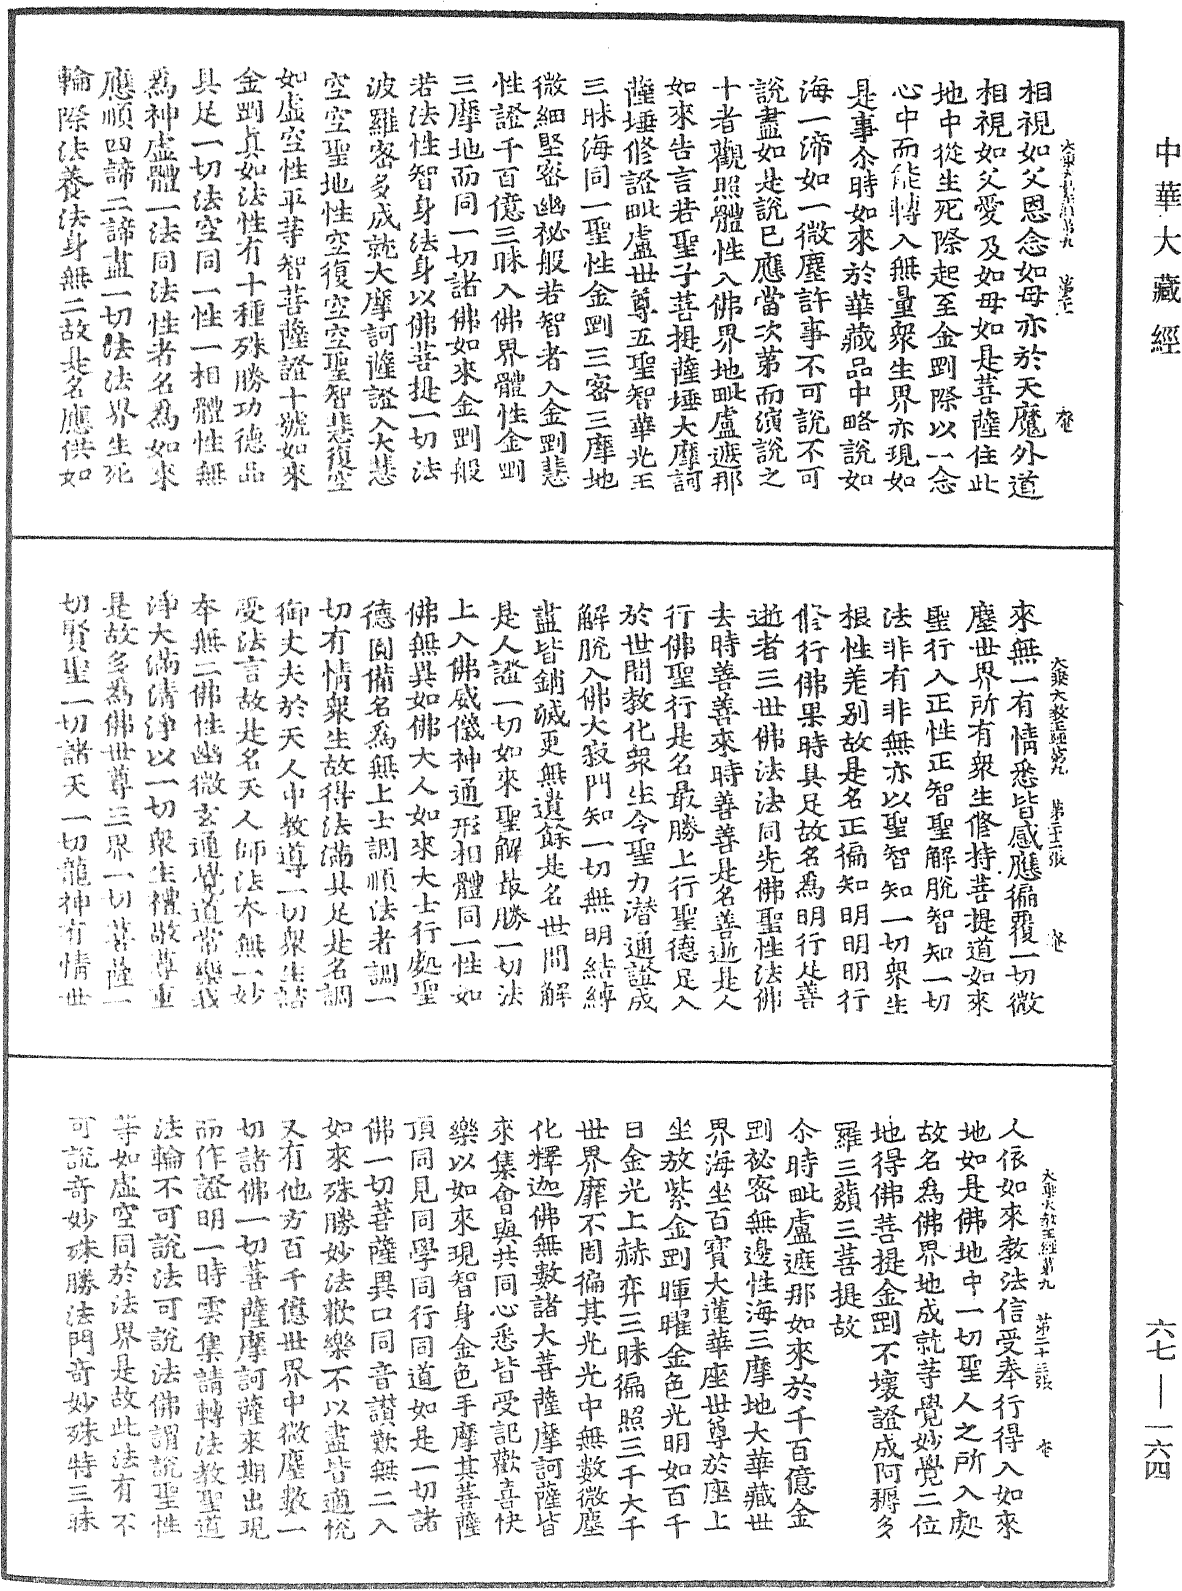 中華大藏經
相視如父恩念如母亦於天魔外道
相視如父愛及如母如是菩薩住此
地中從生死際起至金剛際以一念
心中而能轉入無量衆生界亦現如
是事尒時如來於華藏品中略說如
海一渧如一微塵許事不可說不可
說盡如是說已應當次第而演說之
十者觀照體性入佛界地毗盧遮那
如來告言若聖子菩提薩埵大摩訶
薩埵修證毗盧世尊五聖智華光王
三昧海同一聖性金剛三密三摩地
微細堅密幽祕般若智者入金剛悲
性證千百億三昧入佛界體性金剛
三摩地而同一切諸佛如來金剛般
若法性智身法身以佛菩提一切法
波羅蜜多成就大摩訶薩證入大慈
空空聖地性空復空空聖智慧復空
如虛空性平等智菩薩證十號如來
金剛真如法性有十種殊勝功德品
具足一切法空同一性一相體性無
爲神虛體一法同法性者名爲如來
應順四諦二諦盡一切法法界生死
輪際法養法身無二故是名應供如
大乘大教王經第九 第二十二張
來無一有情悉皆感應徧覆一切微
塵世界所有衆生修持菩提道如來
聖行入正性正智聖解脫智知一切
法非有非無亦以聖智知一切衆生
根性差別故是名正徧知明明明行
修行佛果時具足故名爲明行足善
逝者三世佛法法同先佛聖性法佛
去時善善來時善善是名善逝是人
行佛聖行是名最勝上行聖德足入
於世間教化衆生令聖力潛通證成
解脫入佛大寂門知一切無明結縛
盡皆銷滅更無遺餘是名世間解
是人證一切如來聖解最勝一切法
上入佛威儀神通形相體同一性如
佛無異如佛大人如來大士行處聖
德圓備名爲無上士調順法者調一
切有情衆生故得法滿具足是名調
御丈夫於天人中教導一切衆生諮
受法言故是名天人師法本無一妙
本無二佛性幽微玄通覺道常樂我
淨大滿清淨以一切衆生禮敬尊重
是故多爲佛世尊三界一切菩薩一
切賢聖一切諸天一切龍神有情世
大乘大教王經第九 第二十三張
人依如來教法信受奉行得入如來
地如是佛地中一切聖人之所入處
故名爲佛界地成就等覺妙覺二位
地得佛菩提金剛不壞證成阿耨多
羅三藐三菩提故
尒時毗盧遮那如來於千百億金
剛祕密無邊性海三摩地大華藏世
界海坐百寶大蓮華座世尊於座上
坐放紫金剛暉曜金色光明如百千
日金光上赫弈三昧徧照三千大千
世界靡不周徧其光光中無數微塵
化釋迦佛無數諸大菩薩摩訶薩皆
來集會與共同心悉皆受記歡喜快
樂以如來現智身金色手摩其菩薩
頂同見同學同行同道如是一切諸
佛一切菩薩異口同音讃歎無二入
如來殊勝妙法歡樂不以盡皆適悅
又有他方百千億世界中微塵數一
切諸佛一切菩薩摩訶薩來期出現
而作證明一時雲集請轉法教聖道
法輪不可說法可說法佛謂說聖性
等如虛空同於法界是故此法有不
可說奇妙殊勝法門奇妙殊特三昧
六七—一六四